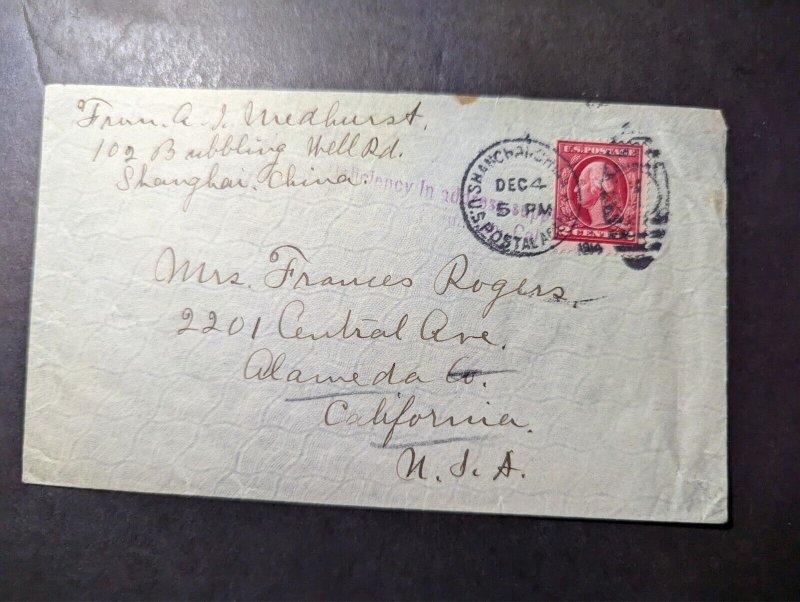 From. A. J. Medhurst,
102 Bubbling Well Rd.
Shanghai. China.
In address
SHANGHAI
DEC 4
5 PM
U.S. POSTAL
1914
U.S. POSTAGE
2 CENTS 2
Mrs. Frances Rogers.
2201 Central Ave.
Alameda Co.
California.
U. S. A.